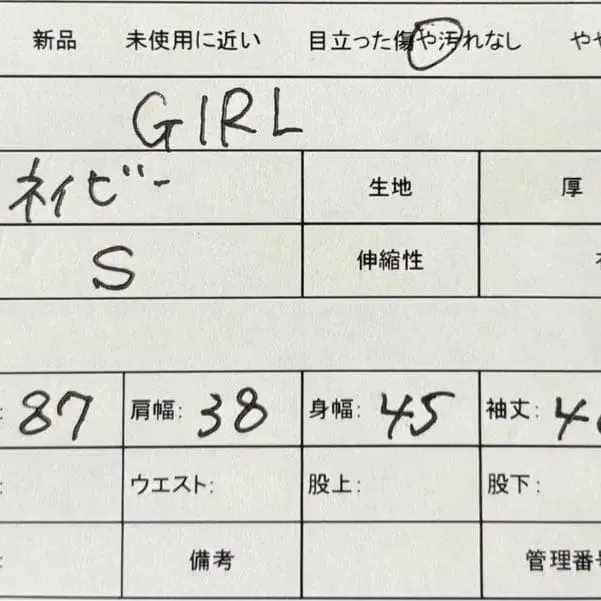 新品 未使用に近い 目立った傷や汚れなし
GIRL
ネイビー 生地 厚
S 伸縮性
87 肩幅: 38 身幅: 45 袖丈:
ウエスト: 股上: 股下:
備考 管理番号